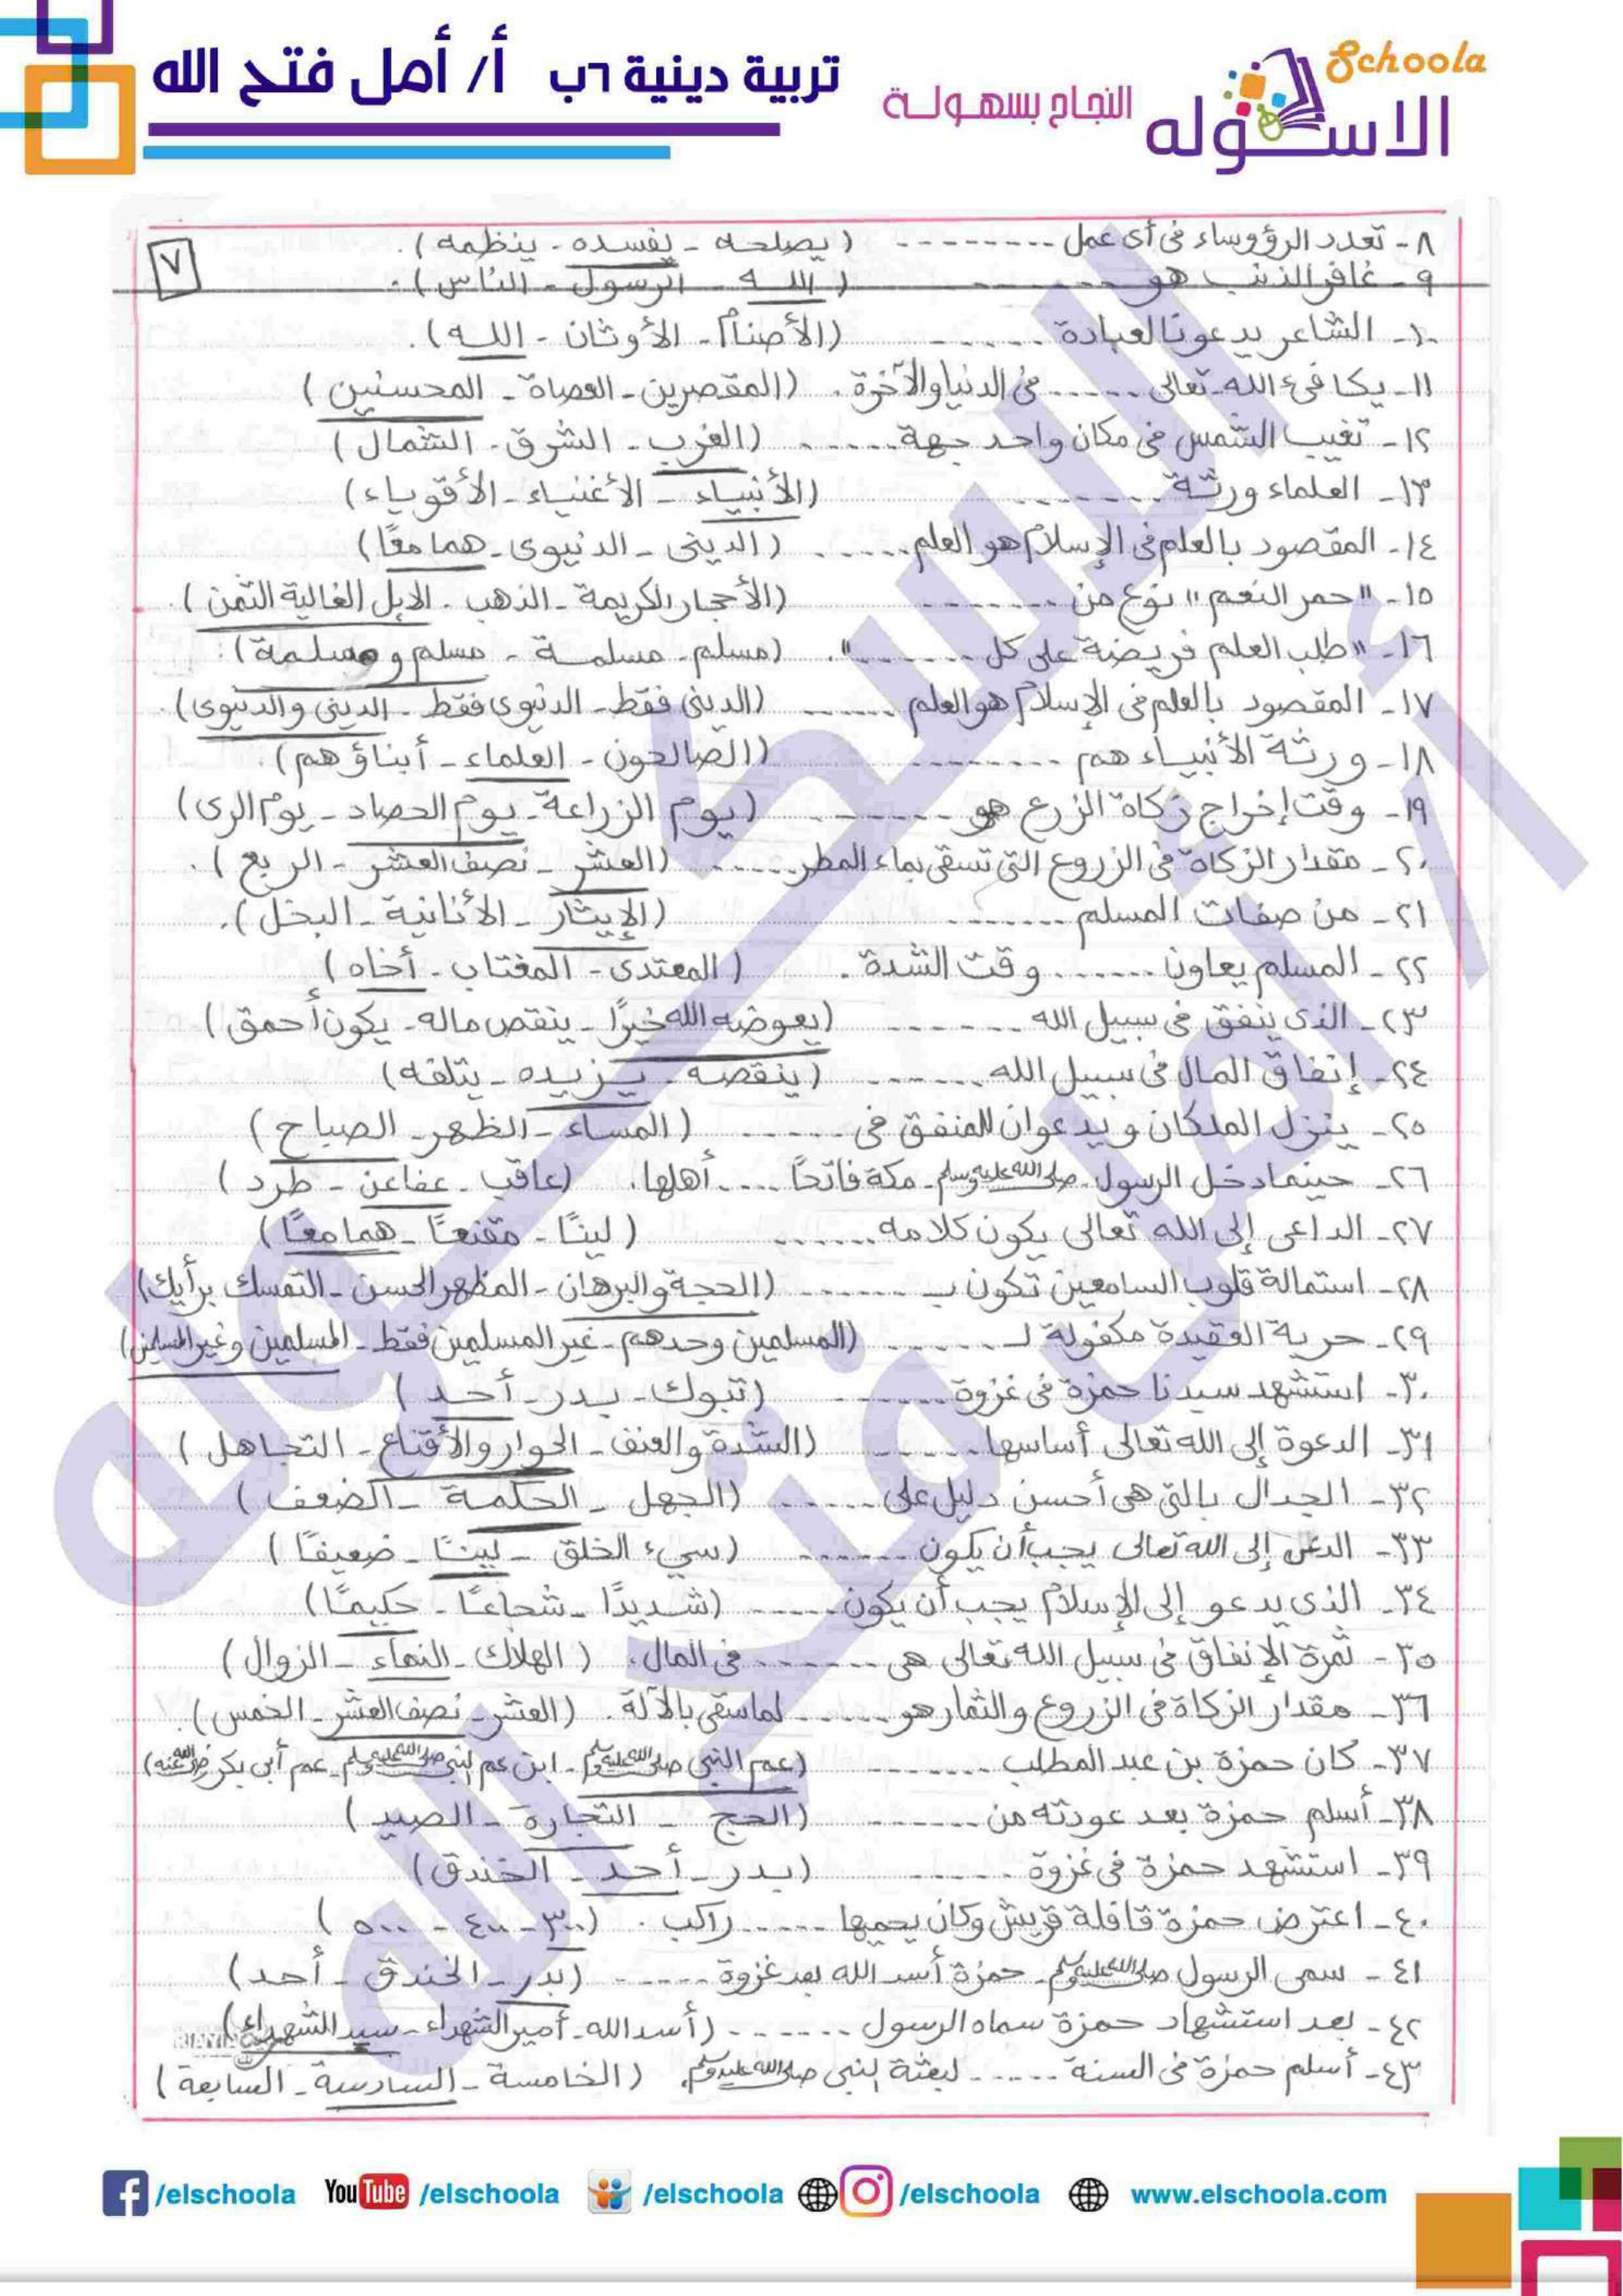 Schoola
الاسكوله
النجاح بسهولة
تربية دينية ٦ب أ/ أمل فتح الله
٧
٨- تعدد الرؤوساء فى أى عمل -------- (يصلحه - يفسده - ينظمه).
٩- غافر الذنب هو -------- (الله - الرسول - الناس).
١٠- الشاعر يدعونا لعبادة ------ (الأصنام - الأوثان - الله).
١١- يكافىء الله تعالى ------ فى الدنيا والآخرة. (المقصرين - العصاة - المحسنين)
١٢- تغيب الشمس فى مكان واحد جهة ------ (الغرب - الشرق - الشمال)
١٣- العلماء ورثة -------- (الأنبياء - الأغنياء - الأقوياء)
١٤- المقصود بالعلم فى الإسلام هو العلم ------ (الدينى - الدنيوى - هما معًا)
١٥- "حمر النعم" نوع من -------- (الأحجار الكريمة - الذهب - الإبل الغالية الثمن).
١٦- "طلب العلم فريضة على كل ------". (مسلم - مسلمة - مسلم ومسلمة).
١٧- المقصود بالعلم فى الإسلام هو العلم ------ (الدينى فقط - الدنيوى فقط - الدينى والدنيوى).
١٨- ورثة الأنبياء هم -------- (الصالحون - العلماء - أبناؤهم).
١٩- وقت إخراج زكاة الزرع هو ------ (يوم الزراعة - يوم الحصاد - يوم الرى)
٢٠- مقدار الزكاة فى الزروع التى تسقى بماء المطر ------ (العشر - نصف العشر - الربع).
٢١- من صفات المسلم ------ (الإيثار - الأنانية - البخل).
٢٢- المسلم يعاون ------ وقت الشدة. (المعتدى - المغتاب - أخاه)
٢٣- الذى ينفق فى سبيل الله ------ (يعوضه الله خيرًا - ينقص ماله - يكون أحمق)
٢٤- إنفاق المال فى سبيل الله ------ (ينقصه - يزيده - يتلفه)
٢٥- ينزل الملكان ويدعوان للمنفق فى ------ (المساء - الظهر - الصباح)
٢٦- حينما دخل الرسول ﷺ مكة فاتحًا ---- أهلها. (عاقب - عفا عن - طرد)
٢٧- الداعى إلى الله تعالى يكون كلامه ------ (لينًا - مقنعًا - هما معًا)
٢٨- استمالة قلوب السامعين تكون بـ ------ (الحجة والبرهان - المظهر الحسن - التمسك برأيك)
٢٩- حرية العقيدة مكفولة لـ ------ (المسلمين وحدهم - غير المسلمين فقط - المسلمين وغير المسلمين)
٣٠- استشهد سيدنا حمزة فى غزوة ------ (تبوك - بدر - أحد)
٣١- الدعوة إلى الله تعالى أساسها ------ (الشدة والعنف - الحوار والأقناع - التجاهل)
٣٢- الجدال بالتى هى أحسن دليل على ------ (الجهل - الحكمة - الضعف)
٣٣- إلى الله تعالى يجب أن يكون ------ (سيىء الخلق - لينًا - ضعيفًا)
٣٤- الذى يدعو إلى الإسلام يجب أن يكون ------ (شديدًا - شجاعًا - حكيمًا)
٣٥- ثمرة الإنفاق فى سبيل الله تعالى هى ------ فى المال. (الهلاك - النماء - الزوال)
٣٦- مقدار الزكاة فى الزروع والثمار هو ------ لما سقى بالآلة. (العشر - نصف العشر - الخمس).
٣٧- كان حمزة بن عبد المطلب ------ (عم النبى ﷺ - ابن عم النبى ﷺ - عم أبى بكر رضى الله عنه)
٣٨- أسلم حمزة بعد عودته من ------ (الحج - التجارة - الصيد)
٣٩- استشهد حمزة فى غزوة ------ (بدر - أحد - الخندق)
٤٠- اعترض حمزة قافلة قريش وكان يحميها ------ راكب. (٣٠٠ - ٤٠٠ - ٥٠٠)
٤١- سمى الرسول ﷺ حمزة أسد الله بعد غزوة ------ (بدر - الخندق - أحد)
٤٢- بعد استشهاد حمزة سماه الرسول ------ (أسد الله - أمير الشهداء - سيد الشهداء)
٤٣- أسلم حمزة فى السنة ------ لبعثة النبى ﷺ (الخامسة - السادسة - السابعة)
/elschoola YouTube /elschoola /elschoola /elschoola www.elschoola.com